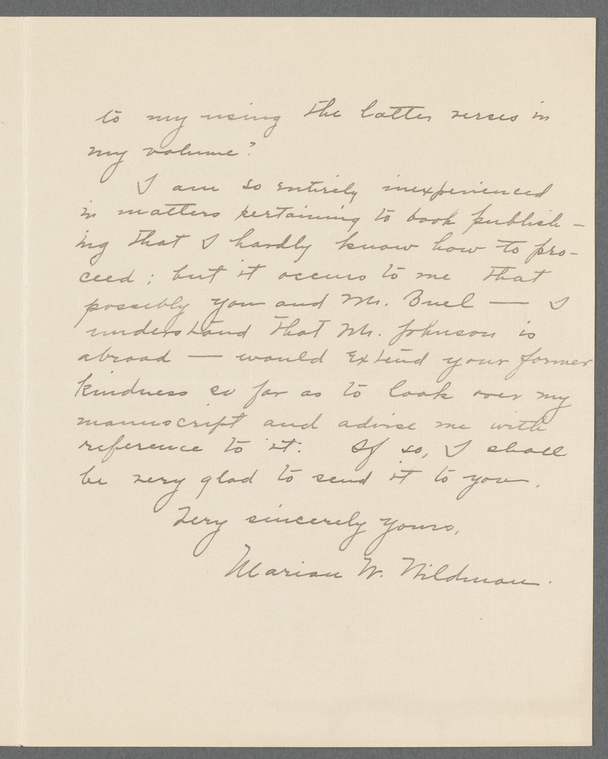 to my using the latter verses in
my volume?
I am so entirely inexperienced
in matters pertaining to book publish-
ing that I hardly know how to pro-
ceed; but it occurs to me that
possibly you and Mr. Buel — I
understand that Mr. Johnson is
abroad — would extend your former
kindness so far as to look over my
manuscript and advise me with
reference to it. If so, I shall
be very glad to send it to you.
Very sincerely yours,
Marian W. Wildman.